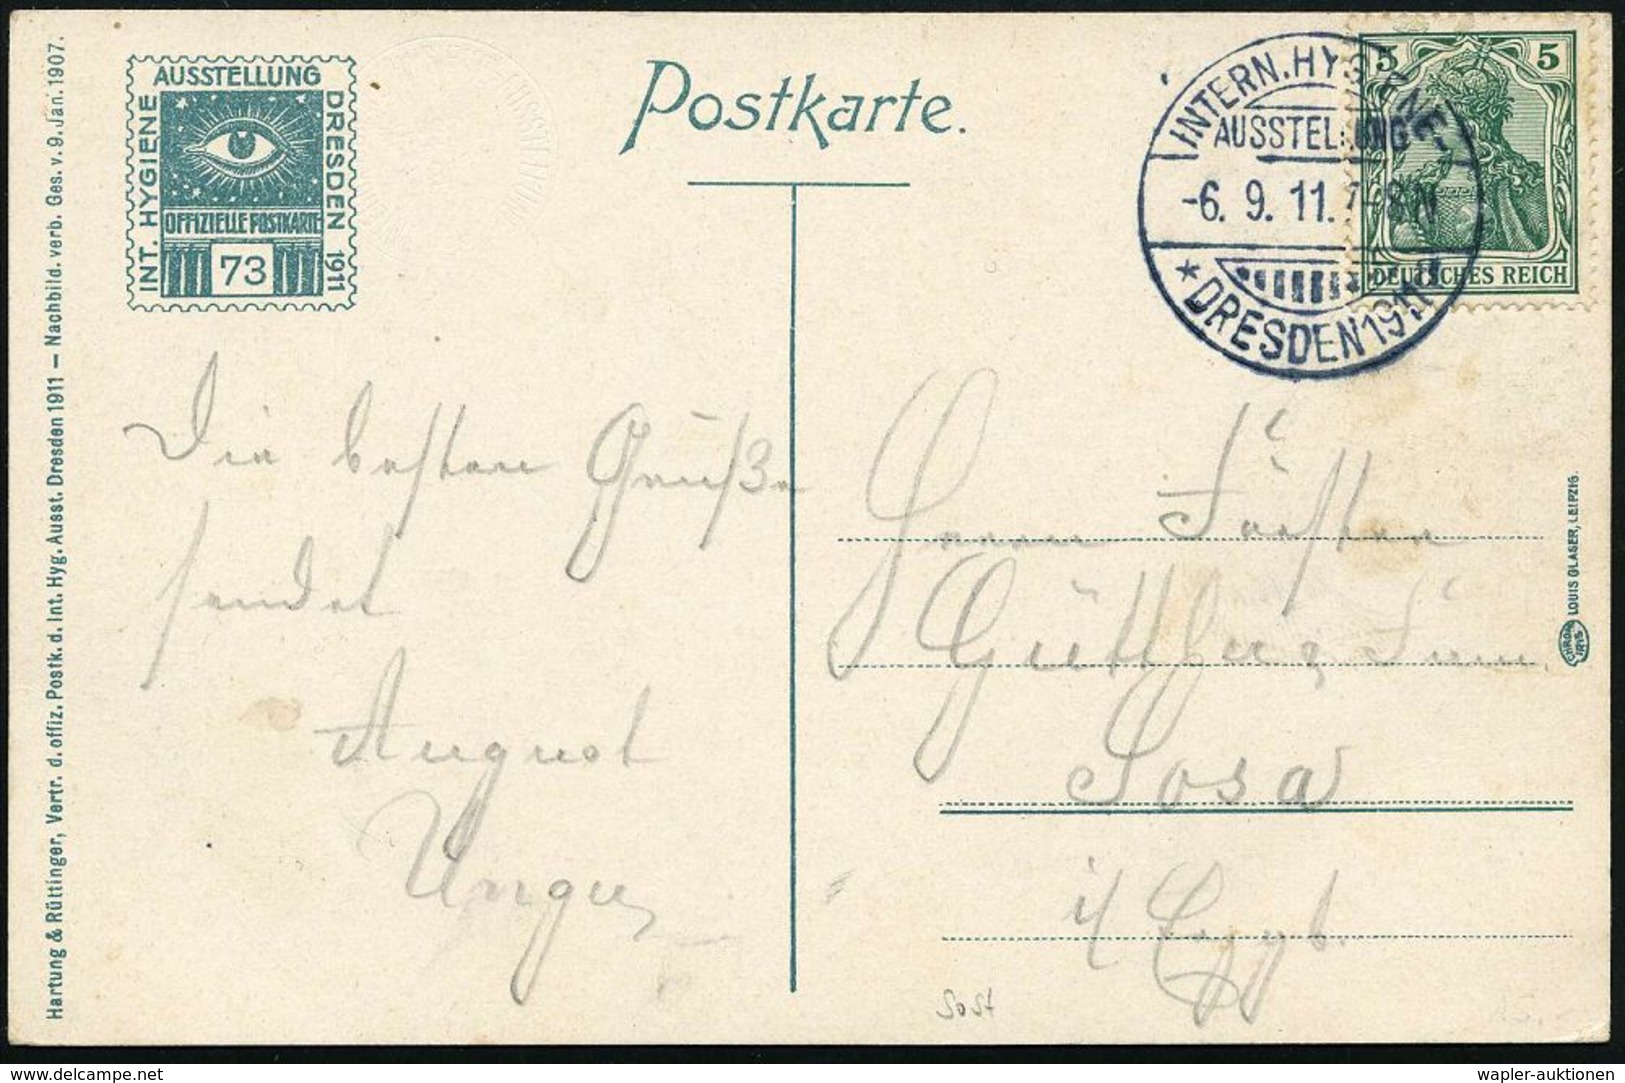 Hartung & Rüttinger, Vertr. d. offiz. Postk. d. Int. Hyg. Ausst. Dresden 1911 — Nachbild. verb. Ges. v. 9. Jan. 1907.
AUSSTELLUNG
INT. HYGIENE
DRESDEN 1911
OFFIZIELLE POSTKARTE
73
Postkarte.
INTERN. HYGIENE-
AUSSTELLUNG
-6. 9. 11. 7-8 N
* DRESDEN 1911 *
5 5
DEUTSCHES REICH
Die besten Grüße
sendet
August
Unger
Herrn Förster
Sosa
i/ Erzgb.
LOUIS GLASER, LEIPZIG.
CHROM
IRIS
Sost
www.delcampe.net
wapler-auktionen